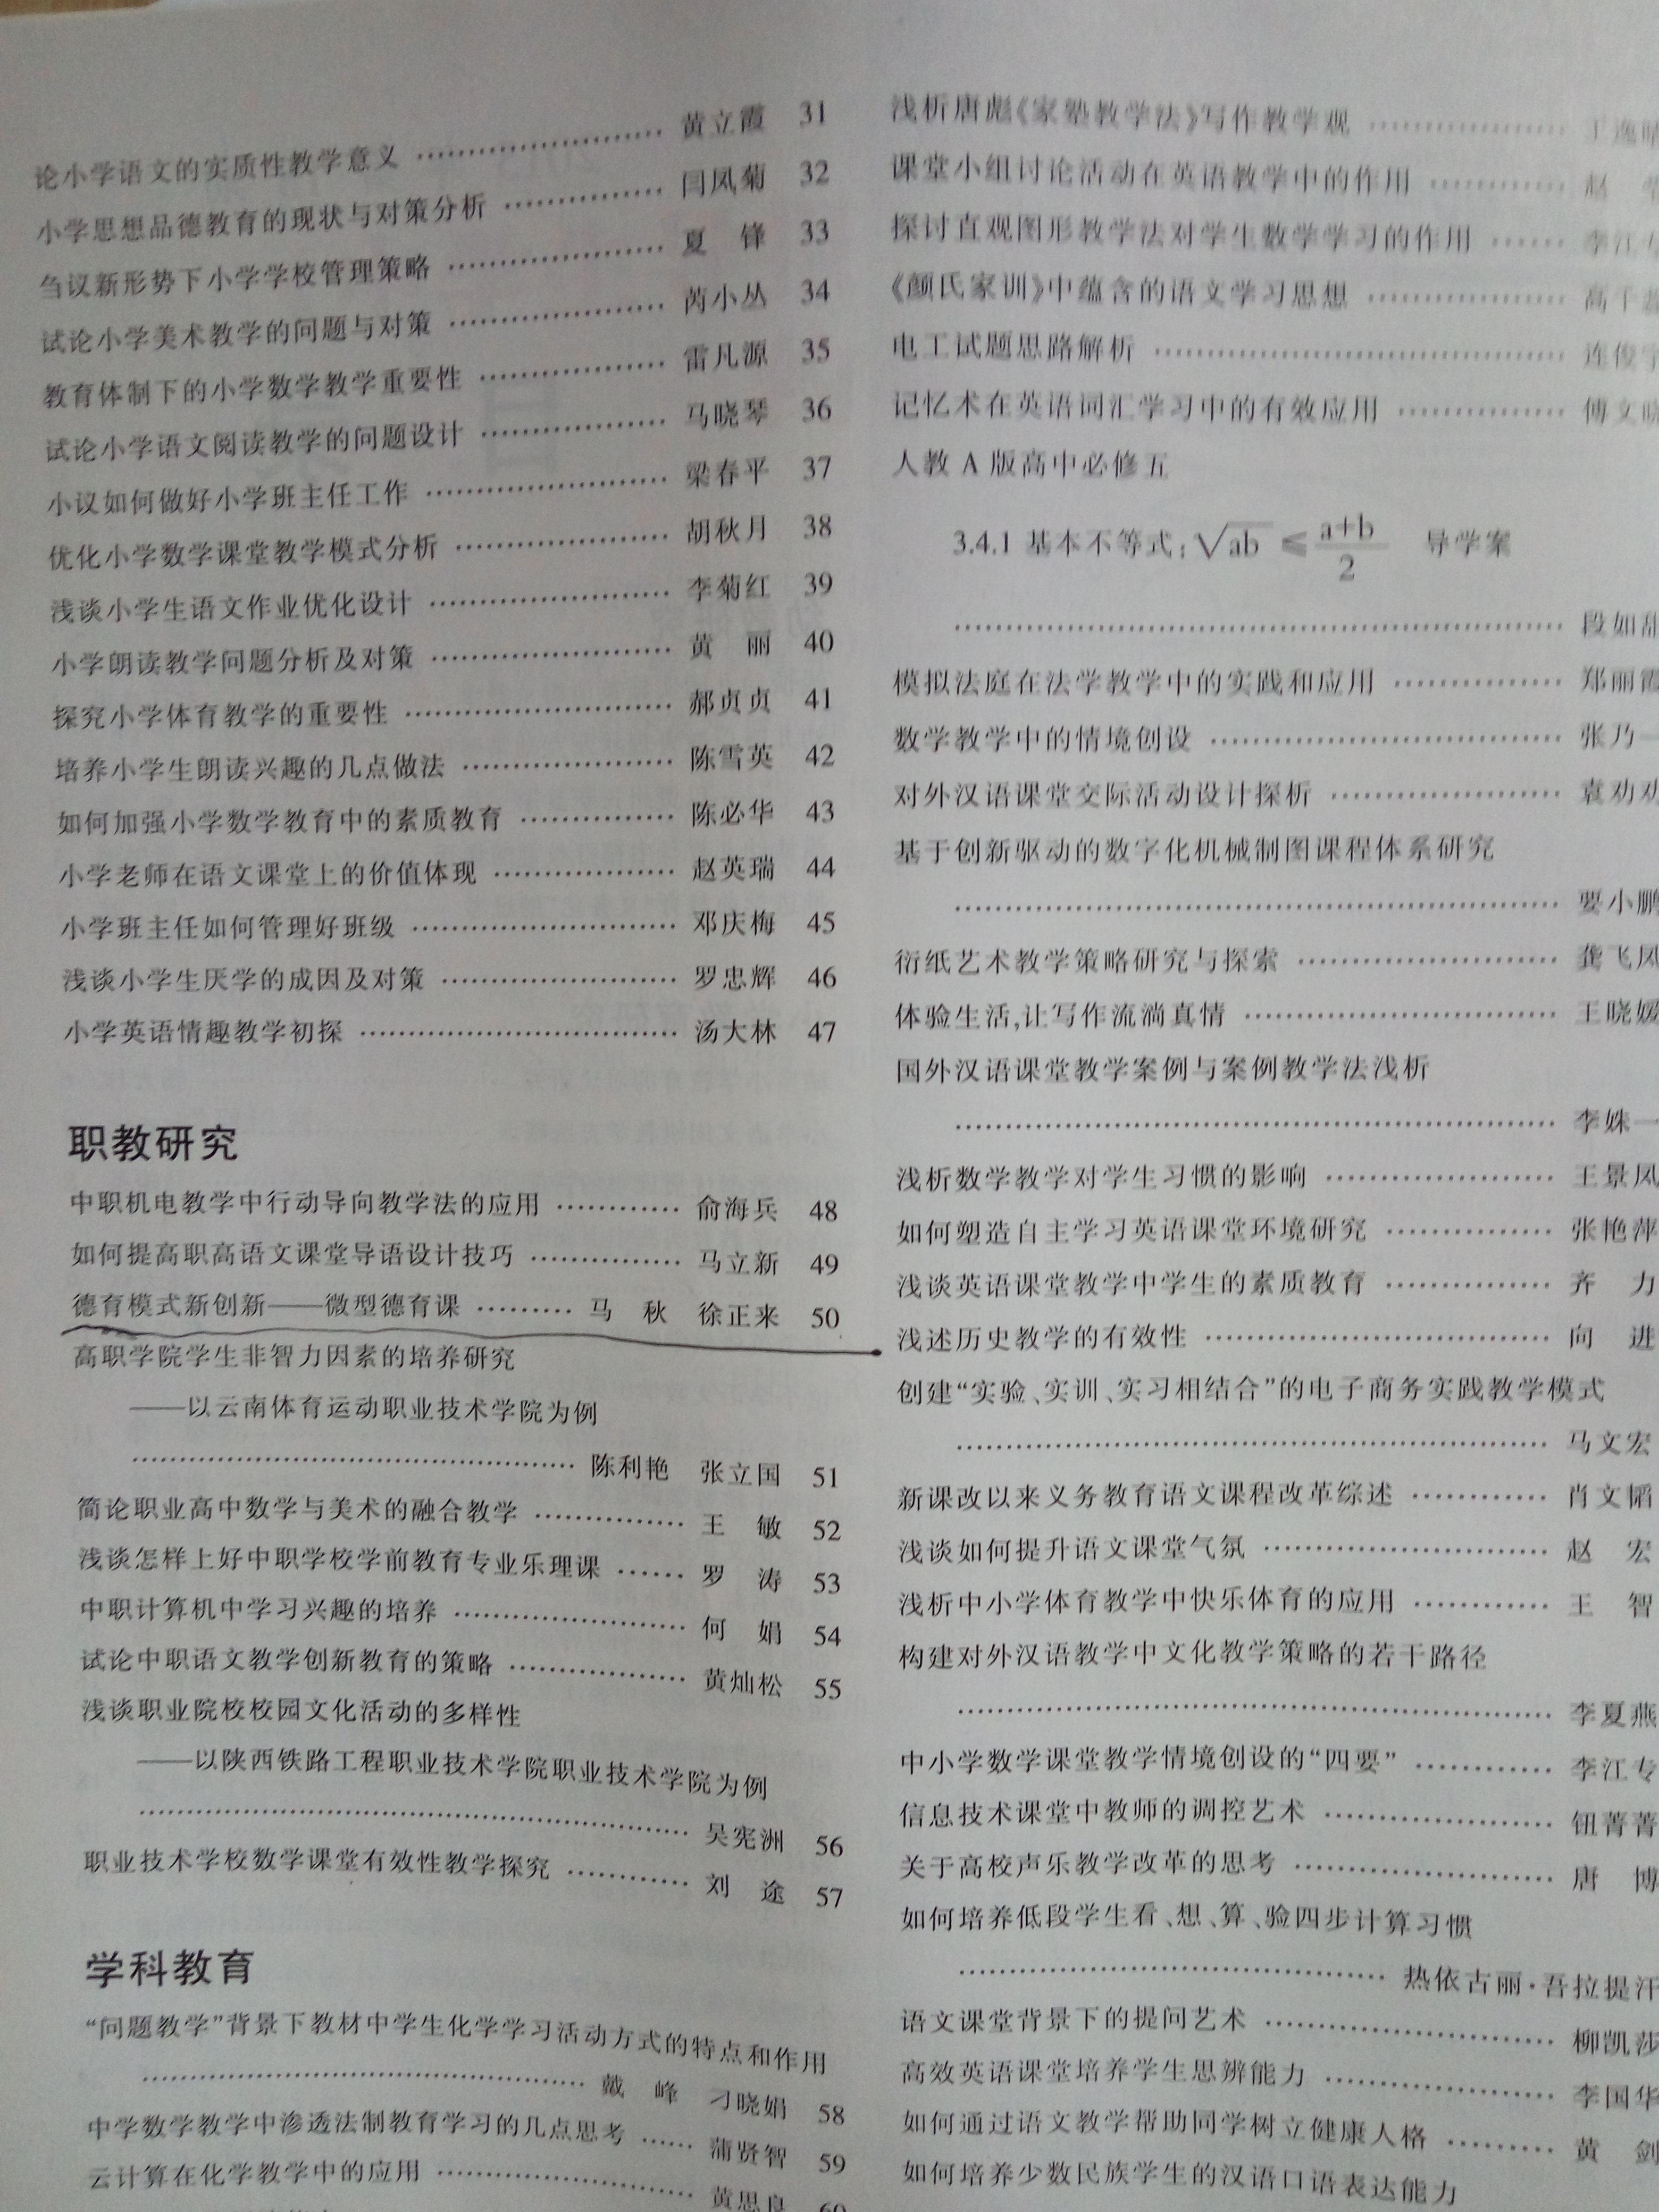 论小学语文的实质性教学意义 …………………… 黄立霞 31
小学思想品德教育的现状与对策分析 …………… 闫凤菊 32
刍议新形势下小学学校管理策略 ………………… 夏　锋 33
试论小学美术教学的问题与对策 ………………… 芮小丛 34
教育体制下的小学数学教学重要性 ……………… 雷凡源 35
试论小学语文阅读教学的问题设计 ……………… 马晓琴 36
小议如何做好小学班主任工作 …………………… 梁春平 37
优化小学数学课堂教学模式分析 ………………… 胡秋月 38
浅谈小学生语文作业优化设计 …………………… 李菊红 39
小学朗读教学问题分析及对策 …………………… 黄　丽 40
探究小学体育教学的重要性 ……………………… 郝贞贞 41
培养小学生朗读兴趣的几点做法 ………………… 陈雪英 42
如何加强小学数学教育中的素质教育 …………… 陈必华 43
小学老师在语文课堂上的价值体现 ……………… 赵英瑞 44
小学班主任如何管理好班级 ……………………… 邓庆梅 45
浅谈小学生厌学的成因及对策 …………………… 罗忠辉 46
小学英语情趣教学初探 …………………………… 汤大林 47
职教研究
中职机电教学中行动导向教学法的应用 ………… 俞海兵 48
如何提高职高语文课堂导语设计技巧 …………… 马立新 49
德育模式新创新——微型德育课 ……… 马　秋　徐正来 50
高职学院学生非智力因素的培养研究
——以云南体育运动职业技术学院为例
………………………………………… 陈利艳　张立国 51
简论职业高中数学与美术的融合教学 …………… 王　敏 52
浅谈怎样上好中职学校学前教育专业乐理课 …… 罗　涛 53
中职计算机中学习兴趣的培养 …………………… 何　娟 54
试论中职语文教学创新教育的策略 ……………… 黄灿松 55
浅谈职业院校校园文化活动的多样性
——以陕西铁路工程职业技术学院职业技术学院为例
………………………………………………… 吴宪洲 56
职业技术学校数学课堂有效性教学探究 ………… 刘　途 57
学科教育
“问题教学”背景下教材中学生化学学习活动方式的特点和作用
……………………………………… 戴　峰　刁晓娟 58
中学数学教学中渗透法制教育学习的几点思考 …… 蒲贤智 59
云计算在化学教学中的应用 ……………………… 黄思良 60
浅析唐彪《家塾教学法》写作教学观 ………………
课堂小组讨论活动在英语教学中的作用 ………… 赵
探讨直观图形教学法对学生数学学习的作用 …… 李江专
《颜氏家训》中蕴含的语文学习思想 ……………… 高千
电工试题思路解析 ………………………………… 连俊
记忆术在英语词汇学习中的有效应用 …………… 傅文
人教 A 版高中必修五
3.4.1 基本不等式:√ab ≤ a+b/2　导学案
…………………………………………………… 段如甜
模拟法庭在法学教学中的实践和应用 …………… 郑丽霞
数学教学中的情境创设 …………………………… 张乃一
对外汉语课堂交际活动设计探析 ………………… 袁劝劝
基于创新驱动的数字化机械制图课程体系研究
…………………………………………………… 要小鹏
衍纸艺术教学策略研究与探索 …………………… 龚飞凤
体验生活,让写作流淌真情 ………………………… 王晓媛
国外汉语课堂教学案例与案例教学法浅析
…………………………………………………… 李姝一
浅析数学教学对学生习惯的影响 ………………… 王景凤
如何塑造自主学习英语课堂环境研究 …………… 张艳萍
浅谈英语课堂教学中学生的素质教育 …………… 齐　力
浅述历史教学的有效性 …………………………… 向　进
创建“实验、实训、实习相结合”的电子商务实践教学模式
…………………………………………………… 马文宏
新课改以来义务教育语文课程改革综述 ………… 肖文韬
浅谈如何提升语文课堂气氛 ……………………… 赵　宏
浅析中小学体育教学中快乐体育的应用 ………… 王　智
构建对外汉语教学中文化教学策略的若干路径
…………………………………………………… 李夏燕
中小学数学课堂教学情境创设的“四要” ………… 李江专
信息技术课堂中教师的调控艺术 ………………… 钮菁菁
关于高校声乐教学改革的思考 …………………… 唐　博
如何培养低段学生看、想、算、验四步计算习惯
…………………………………… 热依古丽·吾拉提汗
语文课堂背景下的提问艺术 ……………………… 柳凯莎
高效英语课堂培养学生思辨能力 ………………… 李国华
如何通过语文教学帮助同学树立健康人格 ……… 黄　剑
如何培养少数民族学生的汉语口语表达能力